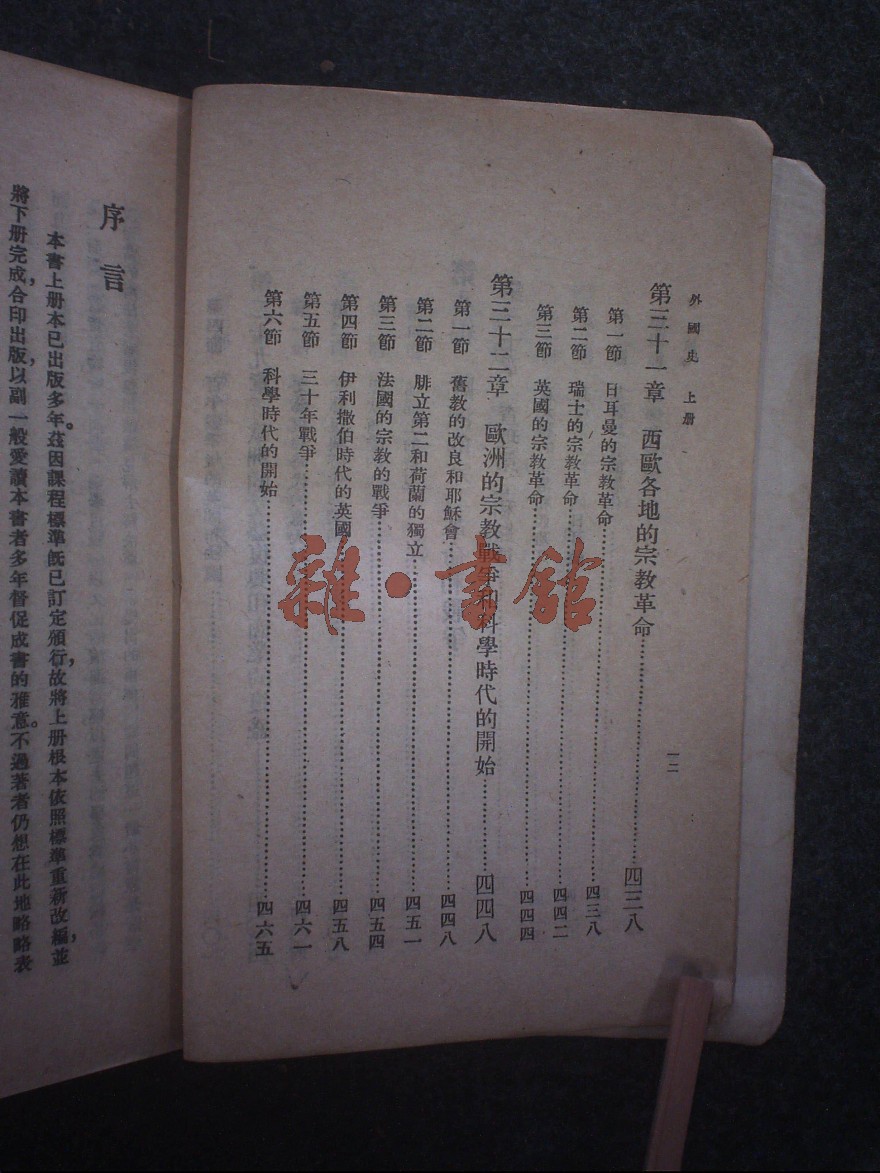 外國史 上册
一二
第三十一章 西歐各地的宗教革命…………四三八
第一節 日耳曼的宗教革命…………四三八
第二節 瑞士的宗教革命…………四四二
第三節 英國的宗教革命…………四四四
第三十二章 歐洲的宗教戰爭和科學時代的開始…………四四八
第一節 舊教的改良和耶穌會…………四四八
第二節 腓立第二和荷蘭的獨立…………四五一
第三節 法國的宗教的戰爭…………四五四
第四節 伊利撒伯時代的英國…………四五八
第五節 三十年戰爭…………四六一
第六節 科學時代的開始…………四六五
序言
本書上册本已出版多年。茲因課程標準旣已訂定頒行，故將上册根本依照標準重新改編，並
將下册完成，合印出版，以副一般愛讀本書者多年督促成書的雅意。不過著者仍想在此地略略表
雜·書館